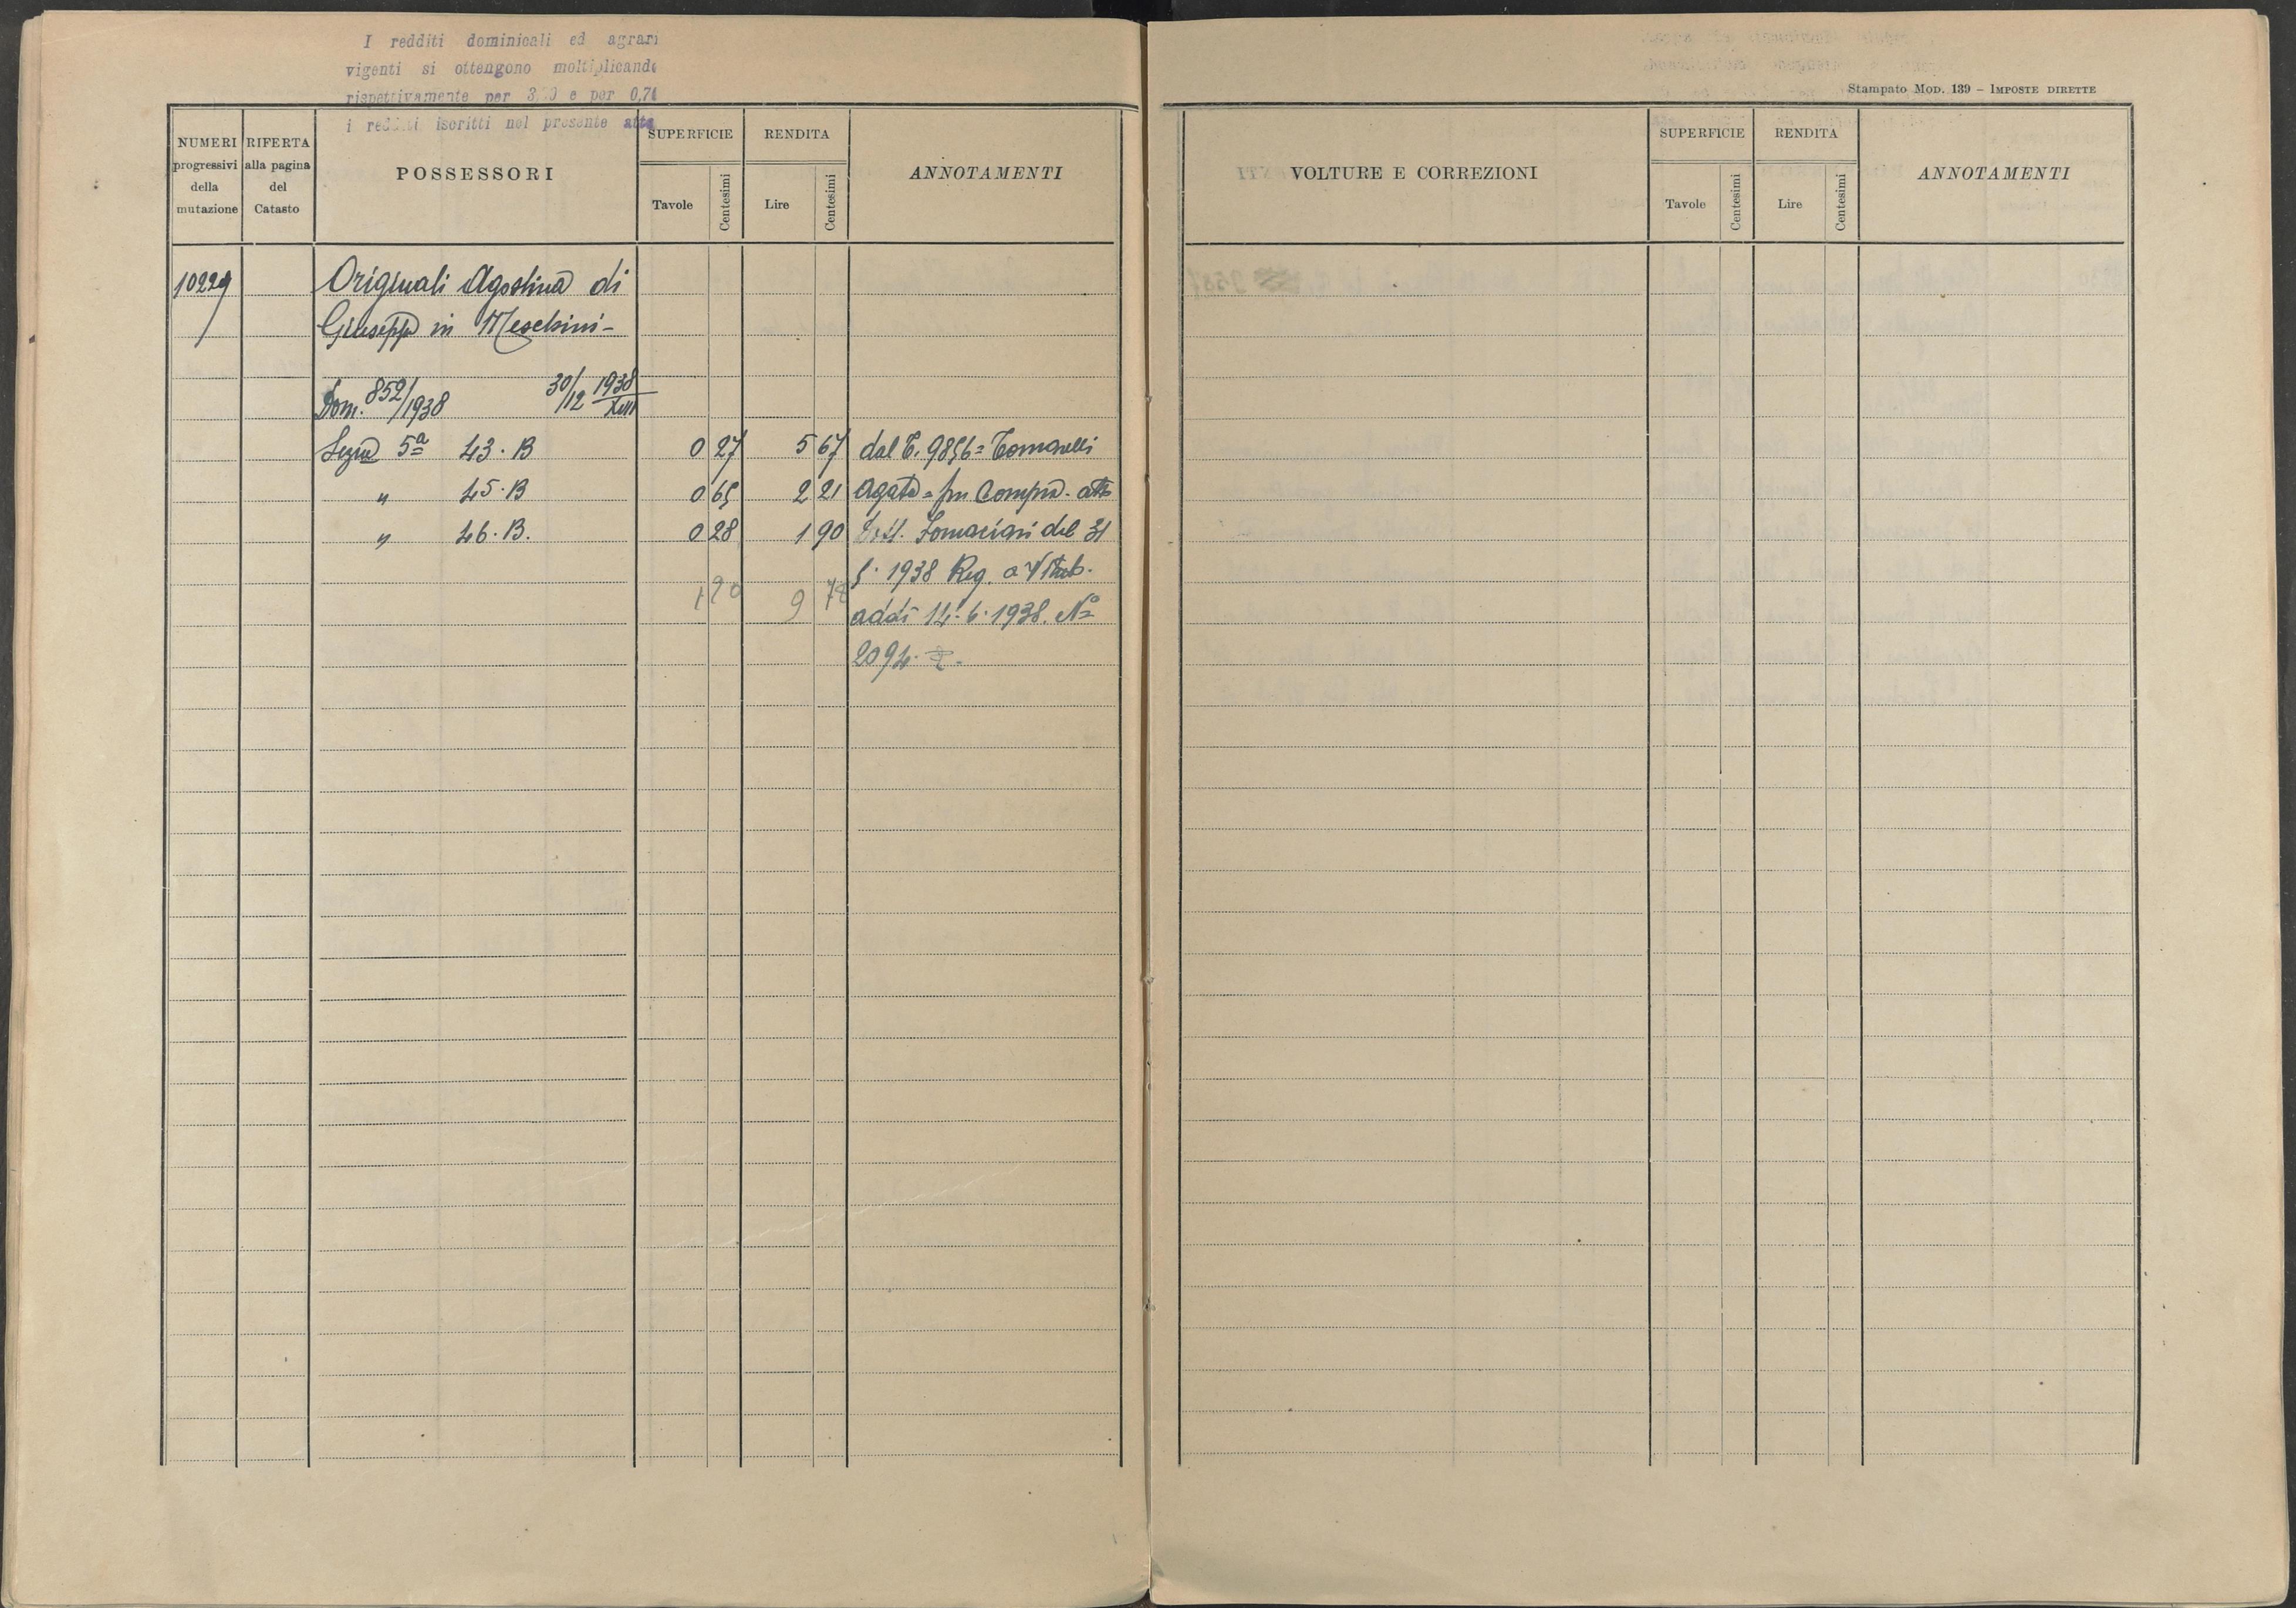 I redditi dominicali ed agrari
vigenti si ottengono moltiplicando
rispettivamente per e per 0,70
i redditi iscritti nel presente atto
Stampato Mod. 139 – Imposte dirette
NUMERI progressivi della mutazione
RIFERTA alla pagina del Catasto
POSSESSORI
SUPERFICIE
Tavole
Centesimi
RENDITA
Lire
Centesimi
ANNOTAMENTI
10229 Originali Agostina di
Giuseppe in Meschini-
Dom. 852/1938 30/12 1938
Sezne 5ª 43.B 0 27 5 67 dal T. 9856 = Tomarelli
" 45.B 0 65 2 21 Agata = per Compra. atto
" 46.B. 0 28 1 90 Dott. Fornaciari del 31
5. 1938 Reg. a Viterb.
1 20 9 78
addì 14.6.1938. Nº
2094.
VOLTURE E CORREZIONI
SUPERFICIE
Tavole
Centesimi
RENDITA
Lire
Centesimi
ANNOTAMENTI